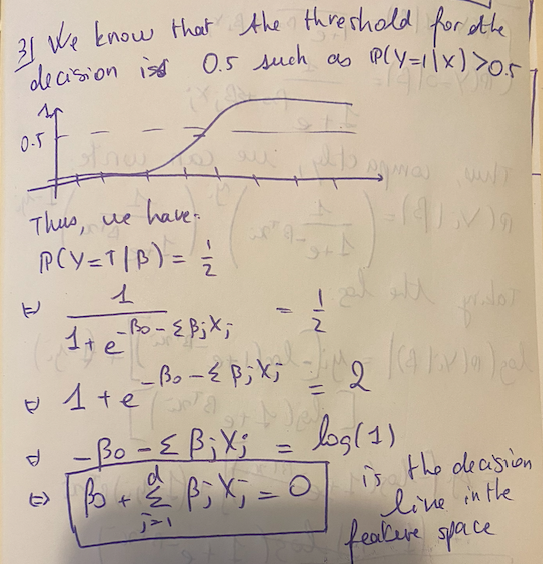 3) We know that the threshold for the
decision is 0.5 such as P(Y=1|X)>0.5
1
0.5
Thus, we have:
P(Y=1|β) = 1/2
⇔ 1/(1+e^(-β0-ΣβjXj)) = 1/2
⇔ 1+e^(-β0-ΣβjXj) = 2
⇔ -β0-ΣβjXj = log(1)
⇔ β0 + Σ_{j=1}^{d} βjXj = 0 is the decision
line in the
feature space